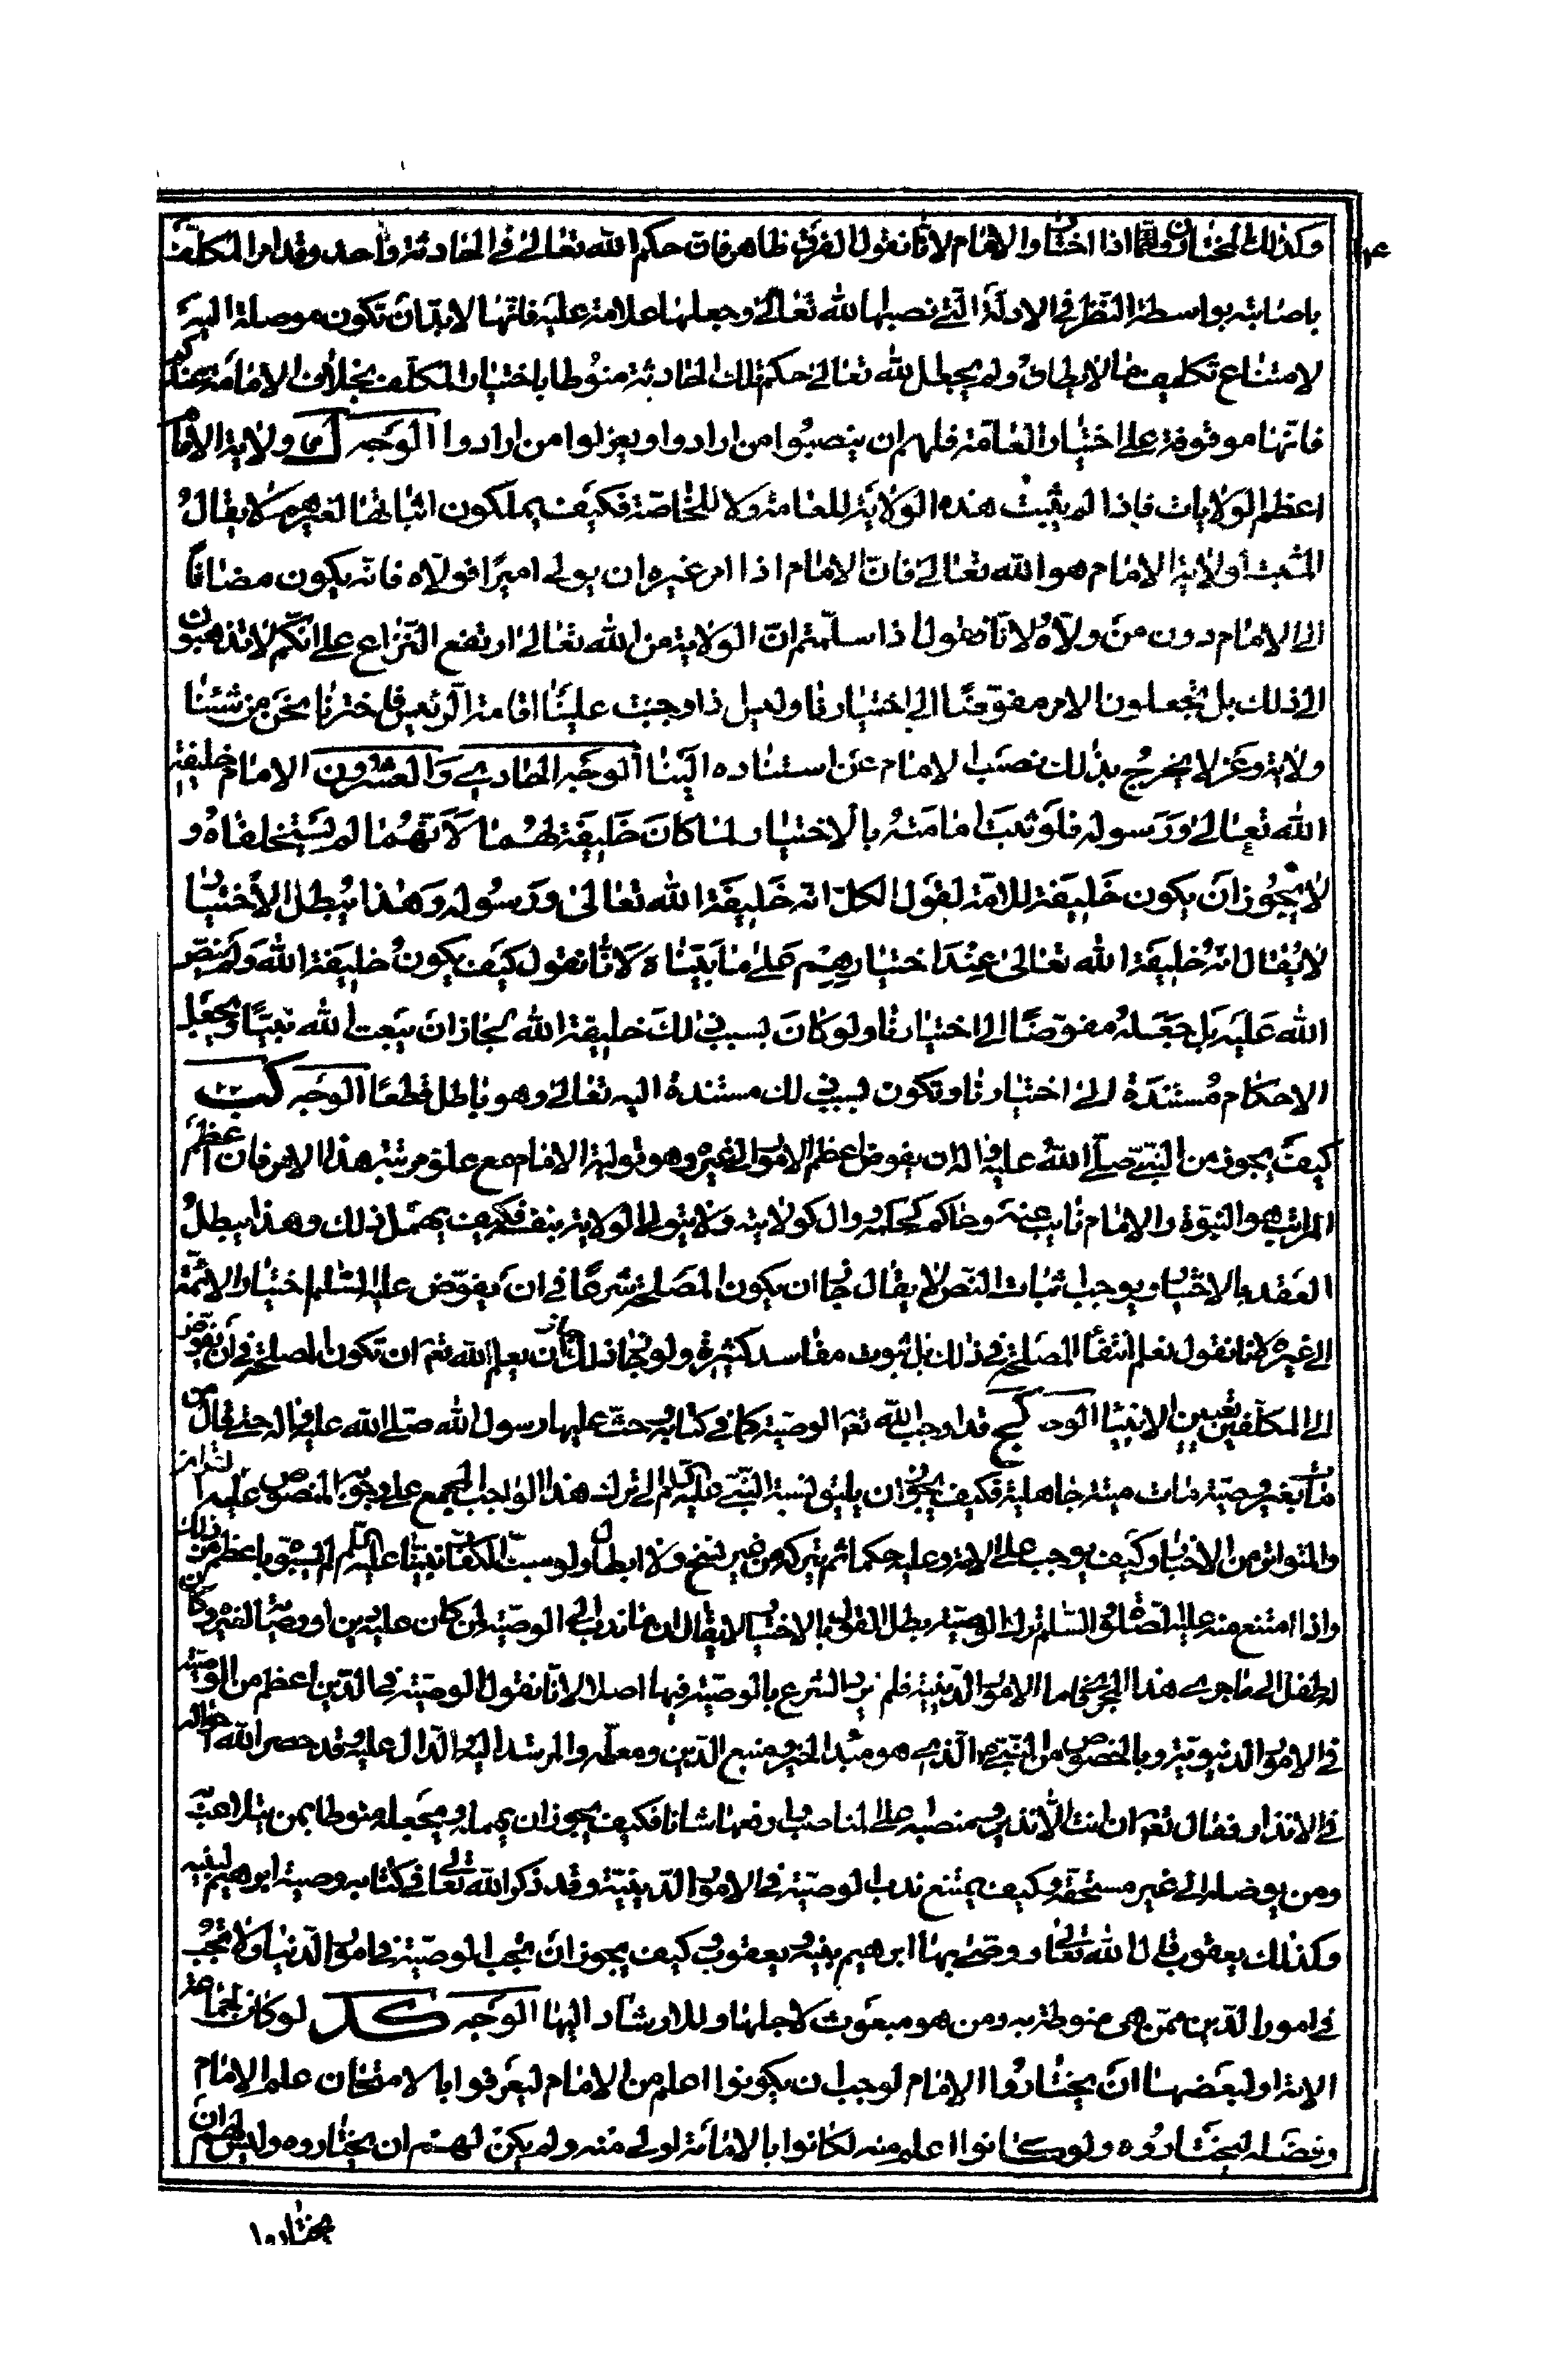 وكذلك المختارون للامام اذا اختاروا الامام لانا نقول الفرق ظاهر فان حكم الله تعالى في الحادثة واحد وقد امر المكلف
باصابته بواسطة النظر في الادلة التي نصبها الله تعالى وجعلها علامة عليه فانها لابد ان تكون موصلة اليه
لامتناع تكليف ما لا يطاق ولم يجعل الله تعالى حكم تلك الحادثة منوطا باختيار المكلف بخلاف الامامة عندكم
فانها موقوفة على اختيار العامة فلهم ان ينصبوا من ارادوا ويعزلوا من ارادوا الوجه ك ولاية الامام
اعظم الولايات فاذا لم يثبت هذه الولاية للعامة ولا للخاصة فكيف يملكون اثباتها لغيرهم لا يقال
المثبت لولاية الامام هو الله تعالى فان الامام اذا امر غيره ان يولي اميرا فولاه فانه يكون مضافا
الى الامام دون من ولاه لانا نقول اذا سلمتم ان الولاية من الله تعالى ارتفع النزاع على انكم لا تذهبون
الى ذلك بل تجعلون الامر مفوضا الى اختيارنا ولعل اذا وجبت علينا اقامة الرئيس فاخترنا نحن من شئنا
ولاية وعزلا لا يخرج بذلك نصب الامام عن استناده الينا الوجه الحادي والعشرون الامام خليفة
الله تعالى ورسوله فلو ثبت امامته بالاختيار لما كان خليفة لهما لانهما لم يستخلفاه و
لا يجوز ان يكون خليفة للامة لقول الكل انه خليفة الله تعالى ورسوله وهذا يبطل الاختيار
لا يقال انه خليفة الله تعالى عند اختيارهم على ما بيناه لانا نقول كيف يكون خليفة الله ولم ينص
الله عليه بل جعله مفوضا الى اختيارنا ولو كان بسبب ذلك خليفة الله لجاز ان يبعث الله نبيا ويجعل
الاحكام مستندة الى اختيارنا وتكون بسبب ذلك مستندة اليه تعالى وهو باطل قطعا الوجه كب
كيف يجوز من النبي صلى الله عليه واله ان يفوض اعظم الامور الى غيره وهو تولية الامام مع علو مرتبة هذا الامر فان اعظم
المراتب هو النبوة والامام نائب عنه وحاكم كحكمه ووال كولايته ولا يتولى الولاية بنفسه فكيف يهمل ذلك وهذا يبطل
العقد بالاختيار ويوجب اثبات النص لا يقال جاز ان يكون المصلحة شرعا في ان يفوض عليه السلام اختيار الائمة
الى غيره لانا نقول نعلم انتفاء المصلحة في ذلك بل ثبوت مفاسد كثيرة ولو جاز ذلك لجاز ان يعلم الله تعم ان تكون المصلحة في ان يفوض
الى المكلفين تعيين الانبياء الوجه كج قد اوجب الله تعم الوصية كما في كتابه وحث عليها رسول الله صلى الله عليه واله حتى قال من
مات بغير وصية مات ميتة جاهلية فكيف يجوز ان يليق نسبة النبي عليه السلام الى ترك هذا الواجب المجمع على وجوبه المنصوص عليه في القران
والمتواتر من الاخبار وكيف يوجب على الامة وعليه حكما ثم يتركه من غير نسخ ولا ابطال ولو سبت الكفار نبينا عليه السلام لم يسبوه باعظم من ذلك
واذا امتنع منه عليه الصلوة والسلام ترك الوصية بطل القول بالاختيار لا يقال انما ندب الى الوصية لمن كان عليه دين او وصيا لغيره وكان
لطفل الى ما جرى هذا المجرى اما الامور الدينية فلم يرد الشرع بالوصية فيها اصلا لانا نقول الوصية في الدين اعظم من الوصية
في الامور الدنيوية وبالخصوص من النبي الذي هو مبدأ الخير ومنبع الدين ومعلمه والمرشد اليه والدال عليه وقد حصر الله احواله
في الانذار فقال تعم ان انت الا نذير ومنصبه على المناصب وارفعها شانا فكيف يجوز ان يهمله ويجعله منوطا بمن يتلاعب
ومن يوصله الى غير مستحقه وكيف يمتنع ندب الوصية في الامور الدينية وقد ذكر الله تعالى في كتابه وصية ابرهيم لبنيه
وكذلك يعقوب قال الله تعالى ووصى بها ابرهيم بنيه ويعقوب وكيف يجوز ان يجب الوصية في امور الدنيا ولا تجب
في امور الدين ممن هي منوطة به ومن هو مبعوث لاجلها وللارشاد اليها الوجه كد لو كان لجماعة
الامة او لبعضها ان يختاروا الامام لوجب ان يكونوا اعلم من الامام ليعرفوا بالامتحان علم الامام
وفضله ليختاروه ولو كانوا اعلم منه لكانوا بالامامة اولى منه ولم يكن لهم ان يختاروه وليس لهم ان
يختاروا